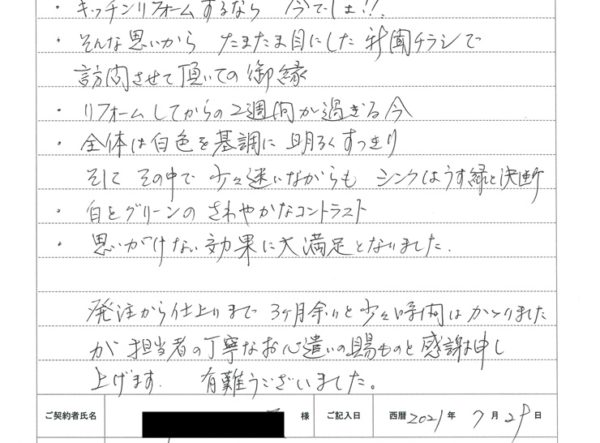 ・キッチンリフォームするなら 今でしょ!!
・そんな思いから たまたま目にした 新聞チラシで
訪問させて頂いての御縁
・リフォームしてからの2週間が過ぎる今
・全体は白色を基調に 明るくすっきり
そして その中で 少々迷いながらも シンクはうす緑と決断
・白とグリーンの さわやかなコントラスト
・思いがけない効果に大満足となりました.
発注から仕上りまで 3ヶ月余りと少々時間はかかりました
が 担当者の丁寧なお心遣いの賜ものと感謝申し
上げます. 有難うございました。
ご契約者氏名 様 ご記入日 西暦 2021年 7月 29日